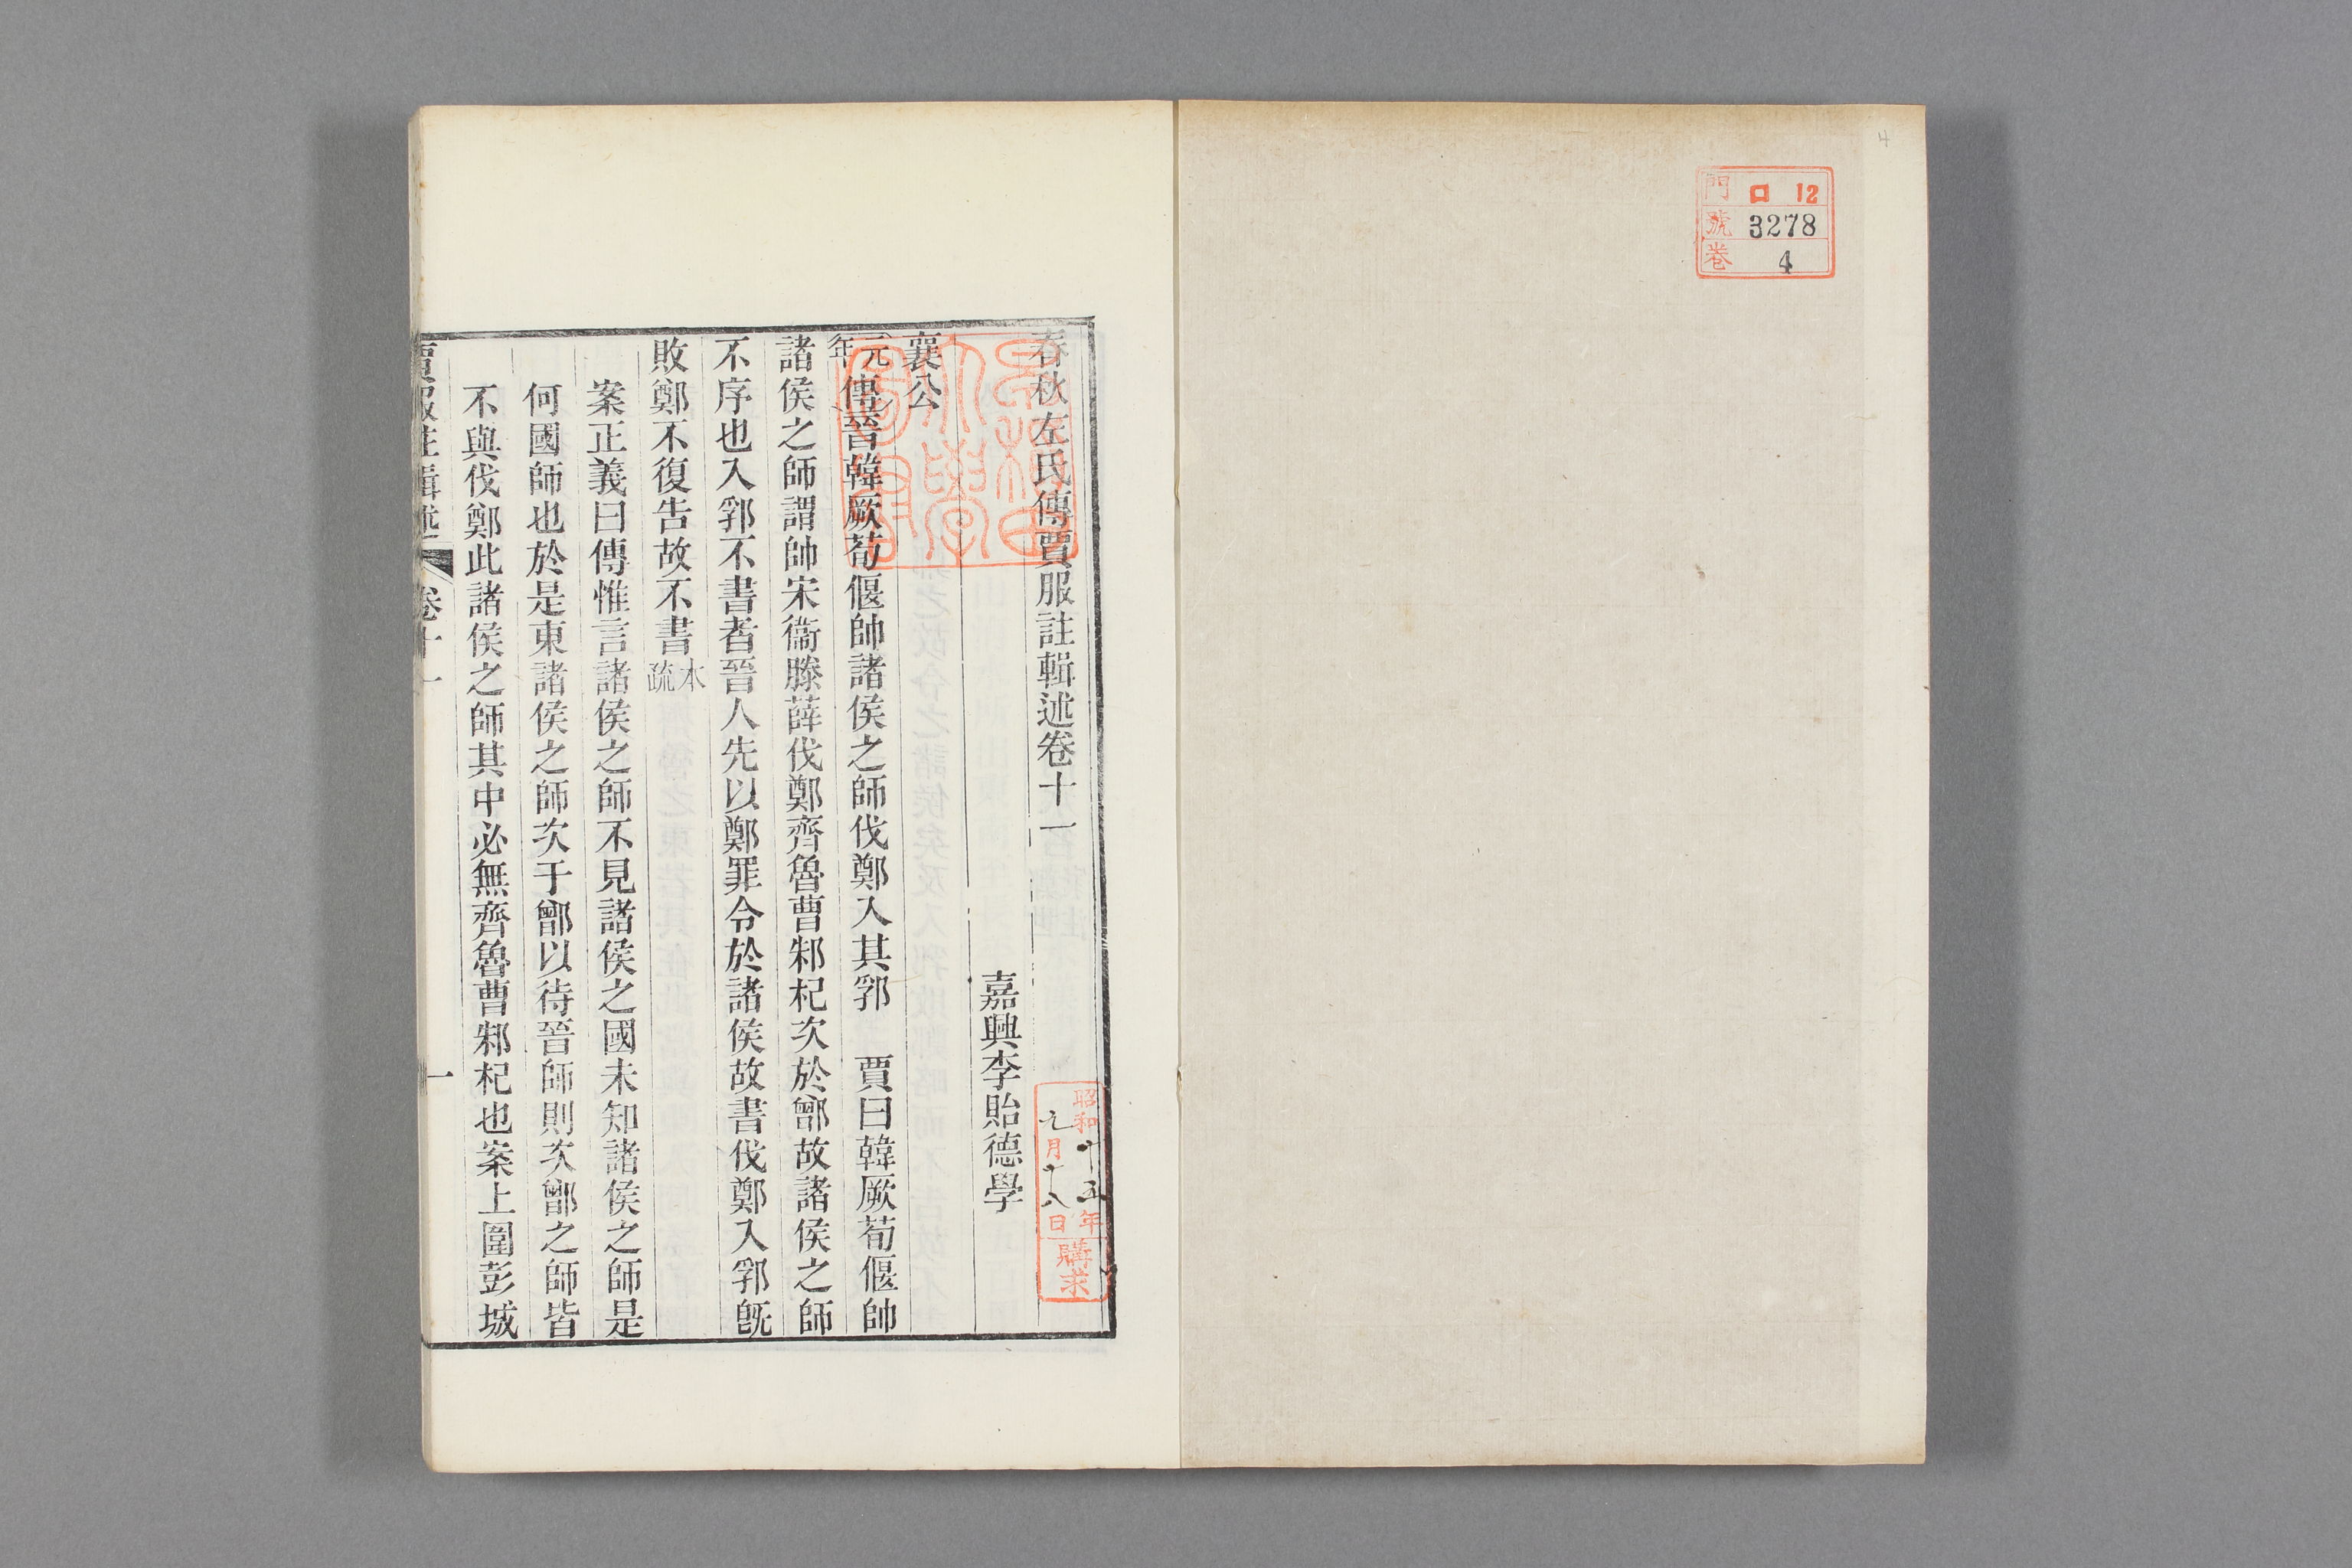 4
門 ロ 12
號 3278
卷 4
春秋左氏傳賈服註輯述卷十一
昭和十五年
九月十八日
購求
嘉興李貽德學
早稻田大學圖書
襄公
元年傳晉韓厥荀偃帥諸侯之師伐鄭入其郛　賈曰韓厥荀偃帥
諸侯之師謂帥宋衞滕薛伐鄭齊魯曹邾杞次於鄫故諸侯之師
不序也入郛不書者晉人先以鄭罪令於諸侯故書伐鄭入郛旣
敗鄭不復告故不書本疏
案正義曰傳惟言諸侯之師不見諸侯之國未知諸侯之師是
何國師也於是東諸侯之師次于鄫以待晉師則次鄫之師皆
不與伐鄭此諸侯之師其中必無齊魯曹邾杞也案上圍彭城
賈服註輯述 卷十一 一